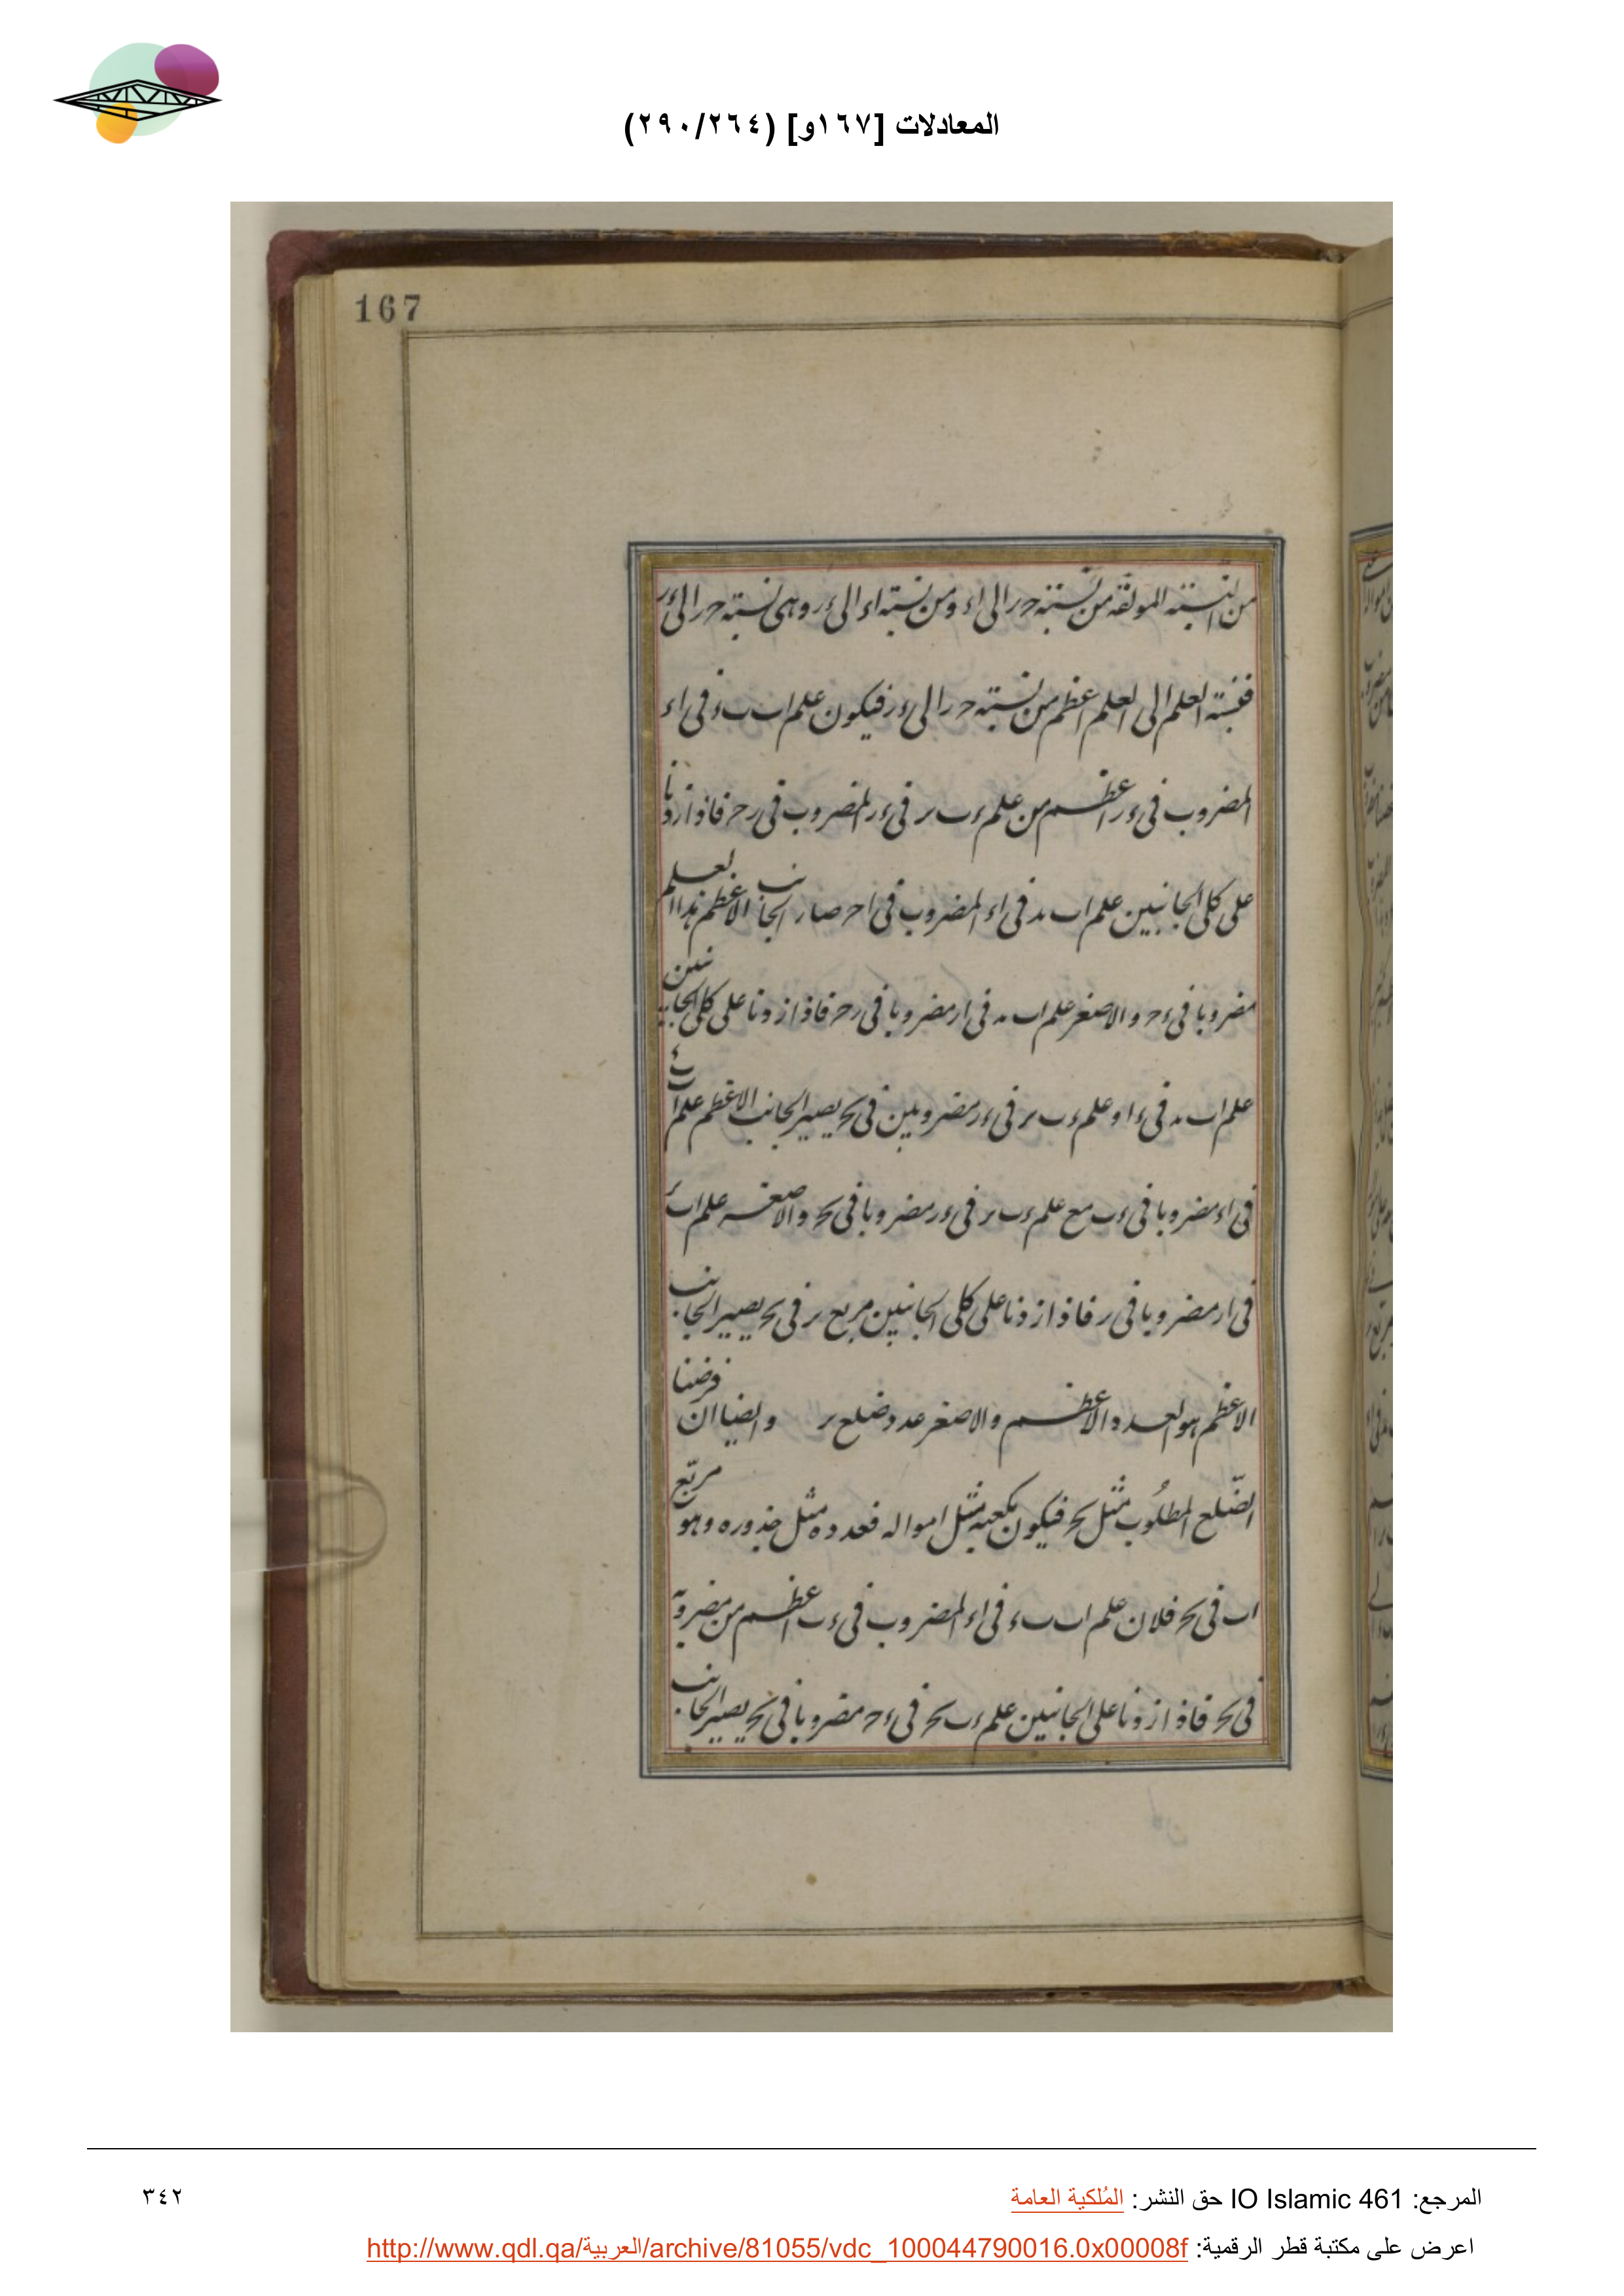 المعادلات [١٦٧و] (٢٩٠/٢٦٤)
167
من النسبة المولفة من نسبة حر الى اء ومن نسبة اء الى ءر وهى نسبة حر الى ءر
فنسبة العلم الى العلم اعظم من نسبة حر الى ءر فيكون علم اب ب ء فى اء
المضروب فى ءر اعظم من علم ء ب ر فى ءر المضروب فى رحر فاذا زدنا
على كلى الجانبين علم اب مد فى اء المضروب فى احر صار الجانب الاعظم هذا العلم
مضروبا فى ءحر والاصغر علم اب مد فى ار مضروبا فى رحر فاذا زدنا على كلى الجانبين
علم اب مد فى ءا وعلم ء ب ر فى ءر مضروبين فى بح يصير الجانب الاعظم علم اب ء
فى اء مضروبا فى ء ب مع علم ء ب ر فى ءر مضروبا فى بح والاصغر علم اب ر
فى ار مضروبا فى ر فاذا زدنا على كلى الجانبين مربع ر فى بح يصير الجانب
الاعظم هو العدد الاعظم والاصغر عدد ضلع ر وايضا ان فرضنا
الضلع المطلوب مثل بح فيكون مكعبه مثل امواله فعدده مثل جذوره وهو مربع
اب فى بح فلان علم اب ب ء فى اء المضروب فى ء ب اعظم من مضروبه
فى بح فاذا زدنا على الجانبين علم ء ب بح فى ءحر مضروبا فى بح يصير الجانب
المرجع: IO Islamic 461 حق النشر: المُلكية العامة
٣٤٢
اعرض على مكتبة قطر الرقمية: http://www.qdl.qa/العربية/archive/81055/vdc_100044790016.0x00008f